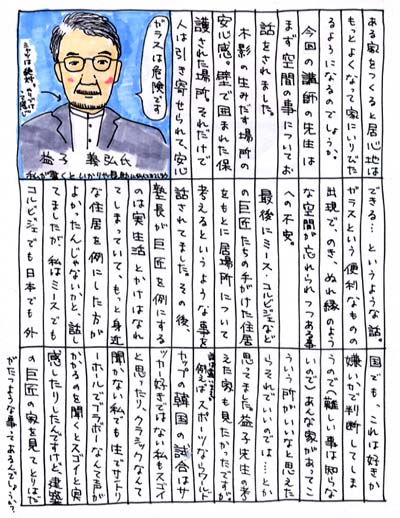 ある家をつくると居心地は
もっとよくなって家にいりびた
るようになるのでしょうか。
今回の講師の先生は
まず空間の事についてお
話をされました。
木影の生みだす場所の
安心感。壁で囲まれた保
護された場所。それだけで
人は引き寄せられて、安心
ガラスは危険です
益子 義弘氏
できる…というような話。
ガラスという便利なものの
出現で、のき、ぬれ縁のよう
な空間が忘れられつつある事
への不安。
最後にミース・コルビジェなど
の巨匠たちの手がけた住居
をもとに居場所について
考えるというような事を
話されてました。その後、
塾長が巨匠を例にする
のは実生活とかけはなれ
てしまっていて、もっと身近
な住居を例にした方が
よかったんじゃないかと、話し
てましたが、私はミースでも
コルビジェでも日本でも外
国でも、これは好きか
嫌いかで判断してしま
うので(難しい事は知らな
いので)あんな家があってこ
ういう所がいいなと思えた
らそれでいいのでは…とか
思ってました。益子先生の考
えた家も見たかったですが
例えばスポーツならワールド
カップの韓国の試合はサ
ッカー好きではない私もスゴイ
と思ったり、クラシックなんて
聞かない私でも生でサントリ
ーホールでブラボーなんて声が
かかるのを聞くとスゴイと実
感したりしたんですけど、建築
の巨匠の家を見てとりはだ
がたつような事ってあるんでしょうか?